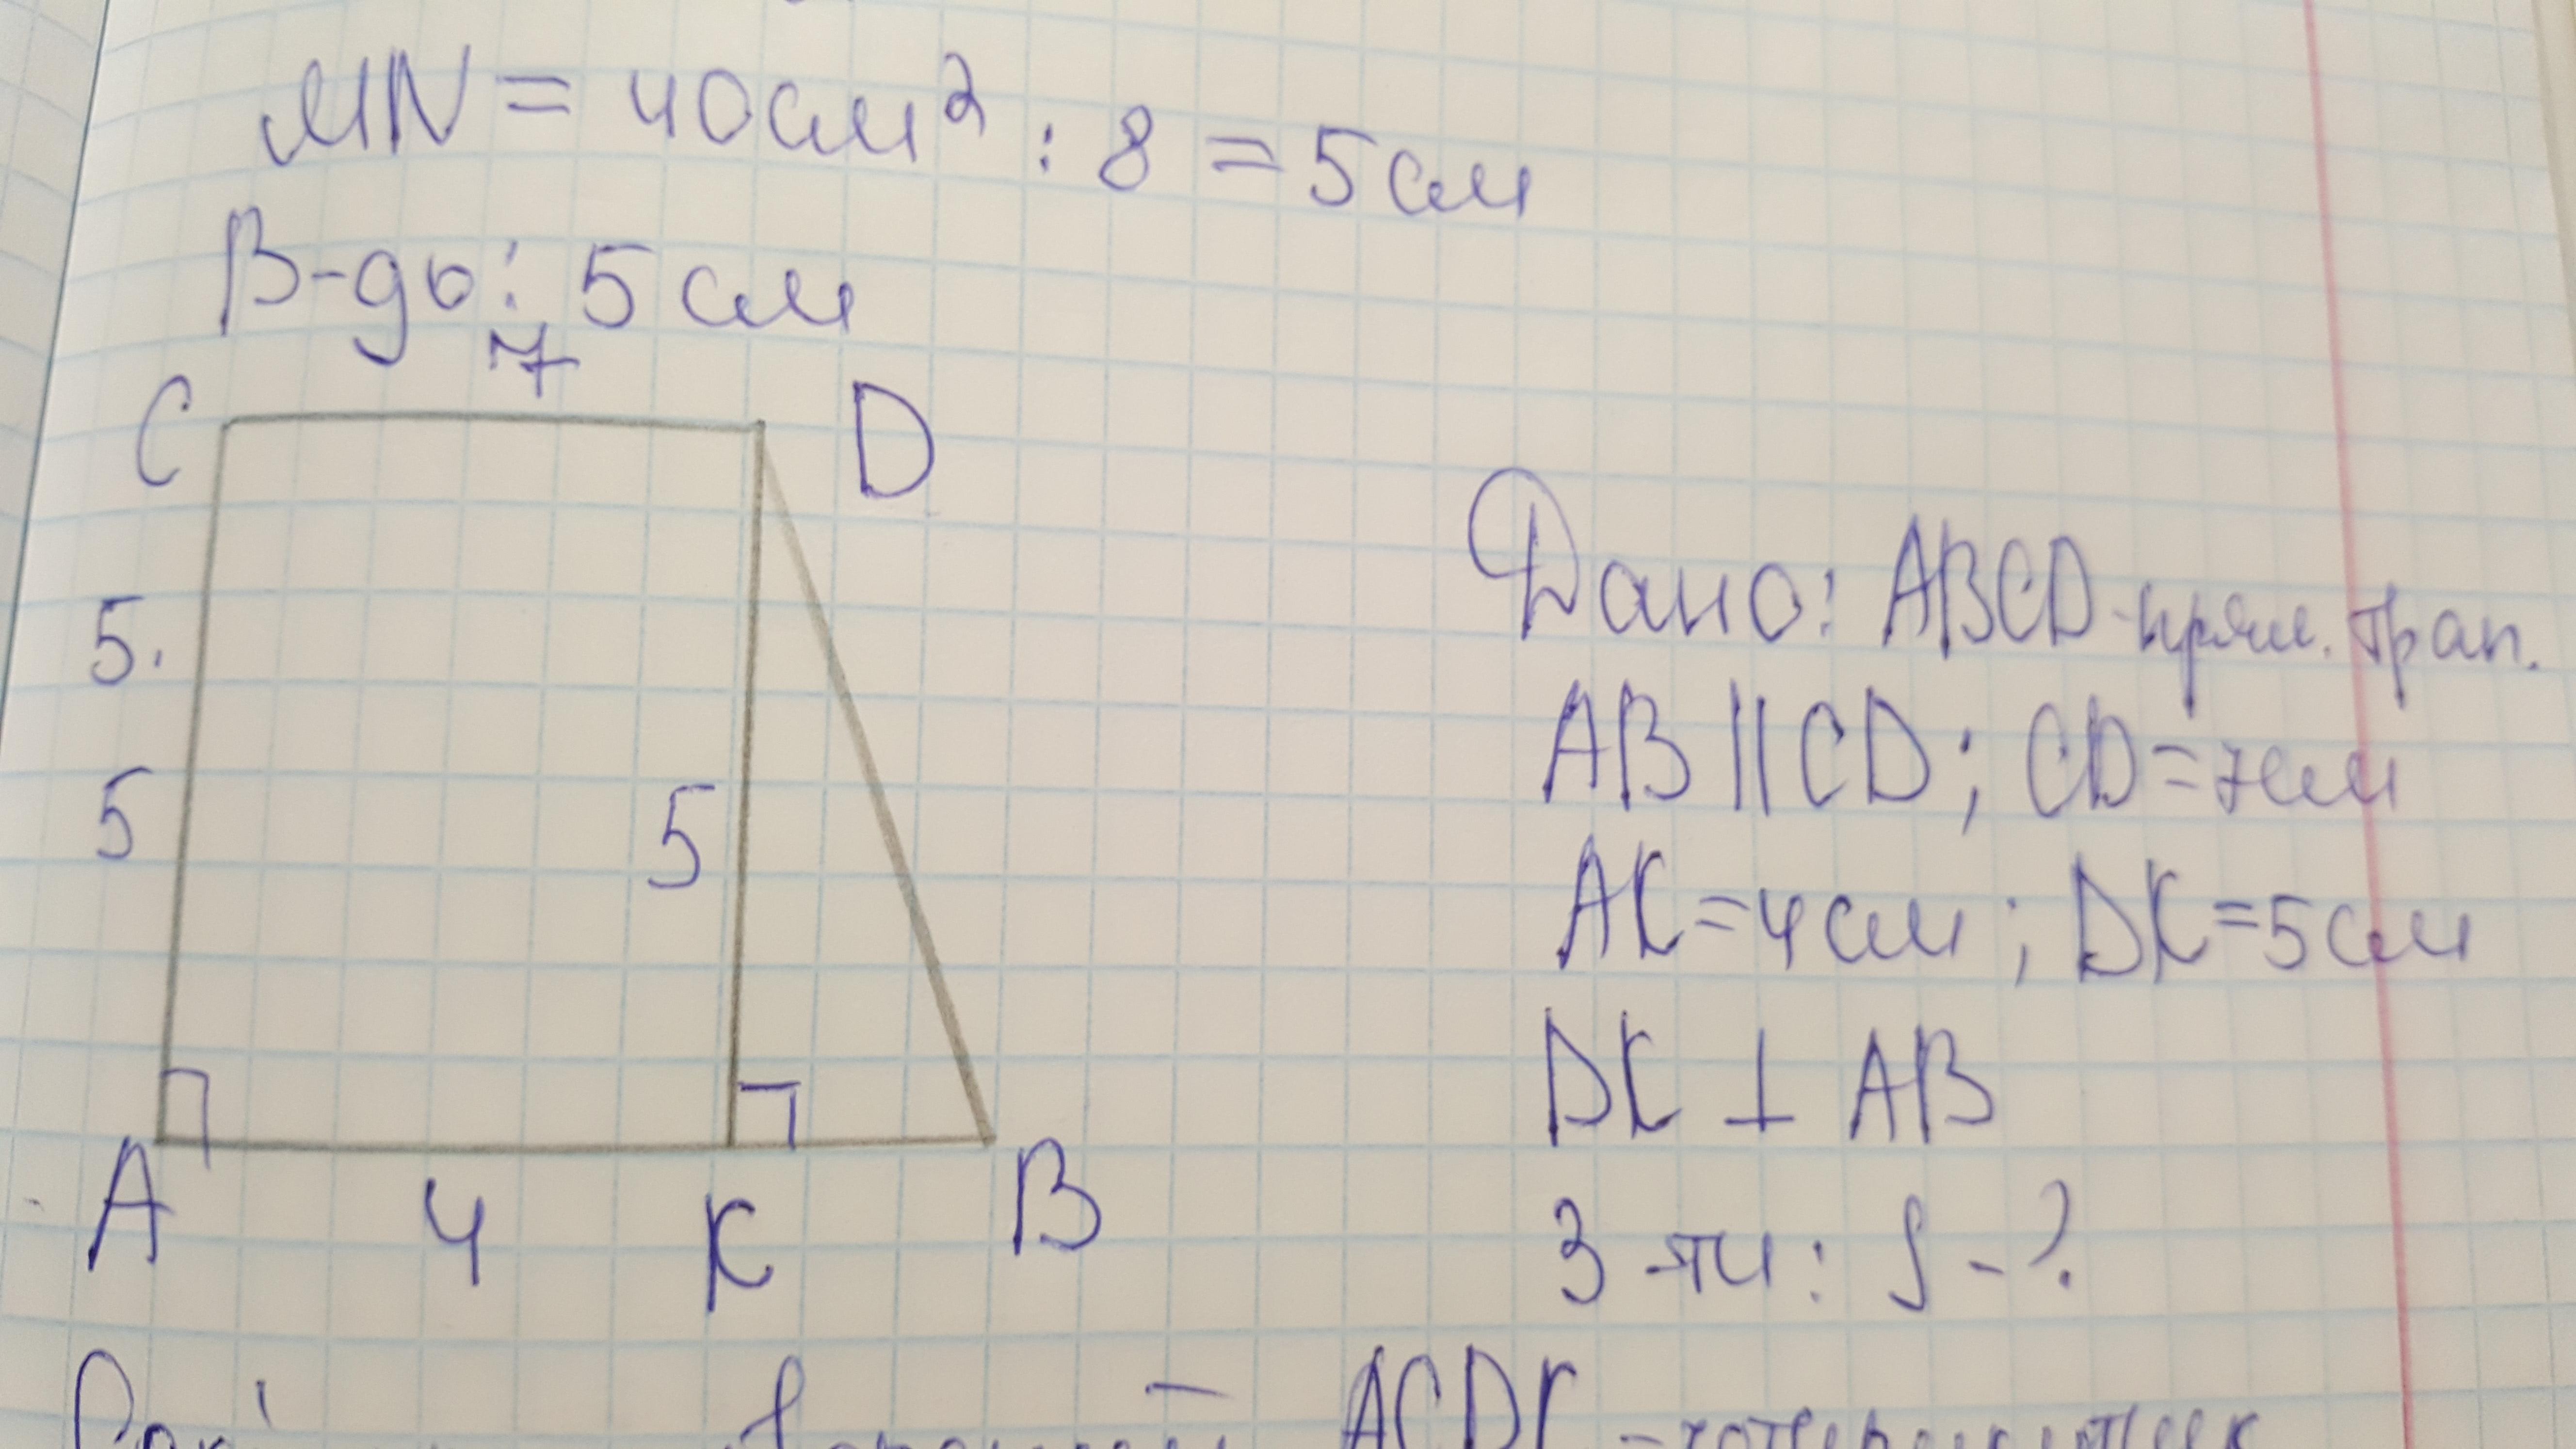 MN = 40см² : 8 = 5см
В-дь: 5 см
7
C D
5.
5 5
A 4 K B
Дано: ABCD - прям. трап.
AB || CD ; CD = 7см
AK = 4см ; DK = 5см
DK ⊥ AB
З-ти : S - ?
ACDK -